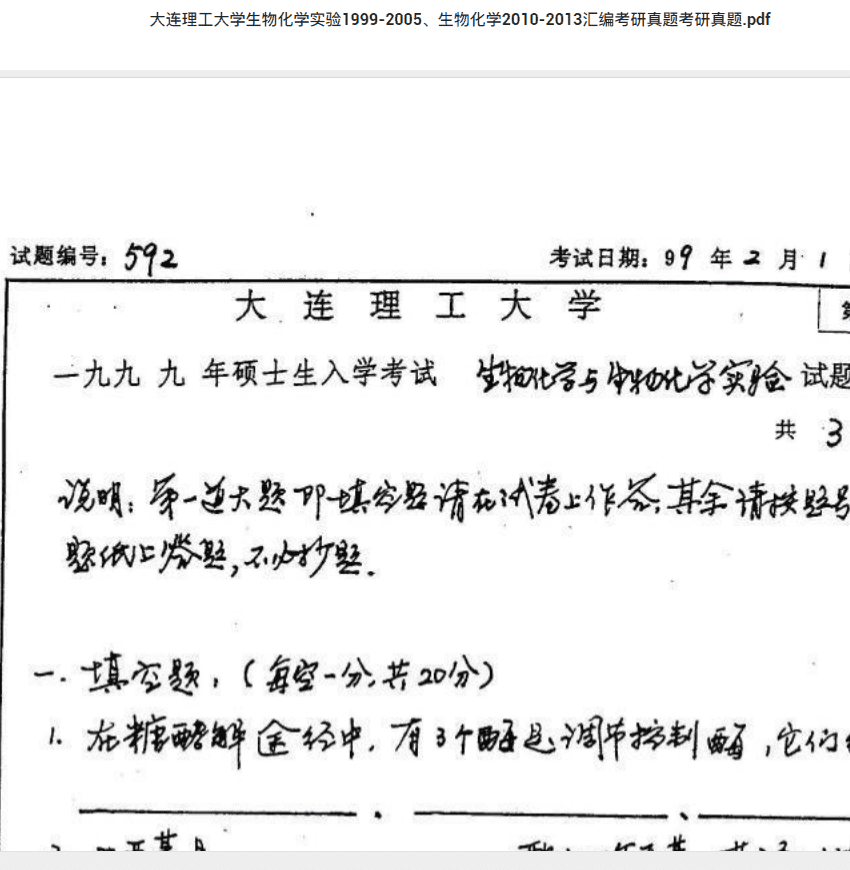 大连理工大学生物化学实验1999-2005、生物化学2010-2013汇编考研真题考研真题.pdf
试题编号：592 考试日期：99 年 2 月 1
大 连 理 工 大 学
一九九 九 年硕士生入学考试 生物化学与生物化学实验 试题
共 3
说明：第一道大题即填空题请在试卷上作答；其余请按题号
题纸上答题，不必抄题．
一．填空题：（每空一分，共20分）
1. 在糖酵解途径中，有3个酶是调节控制酶，它们